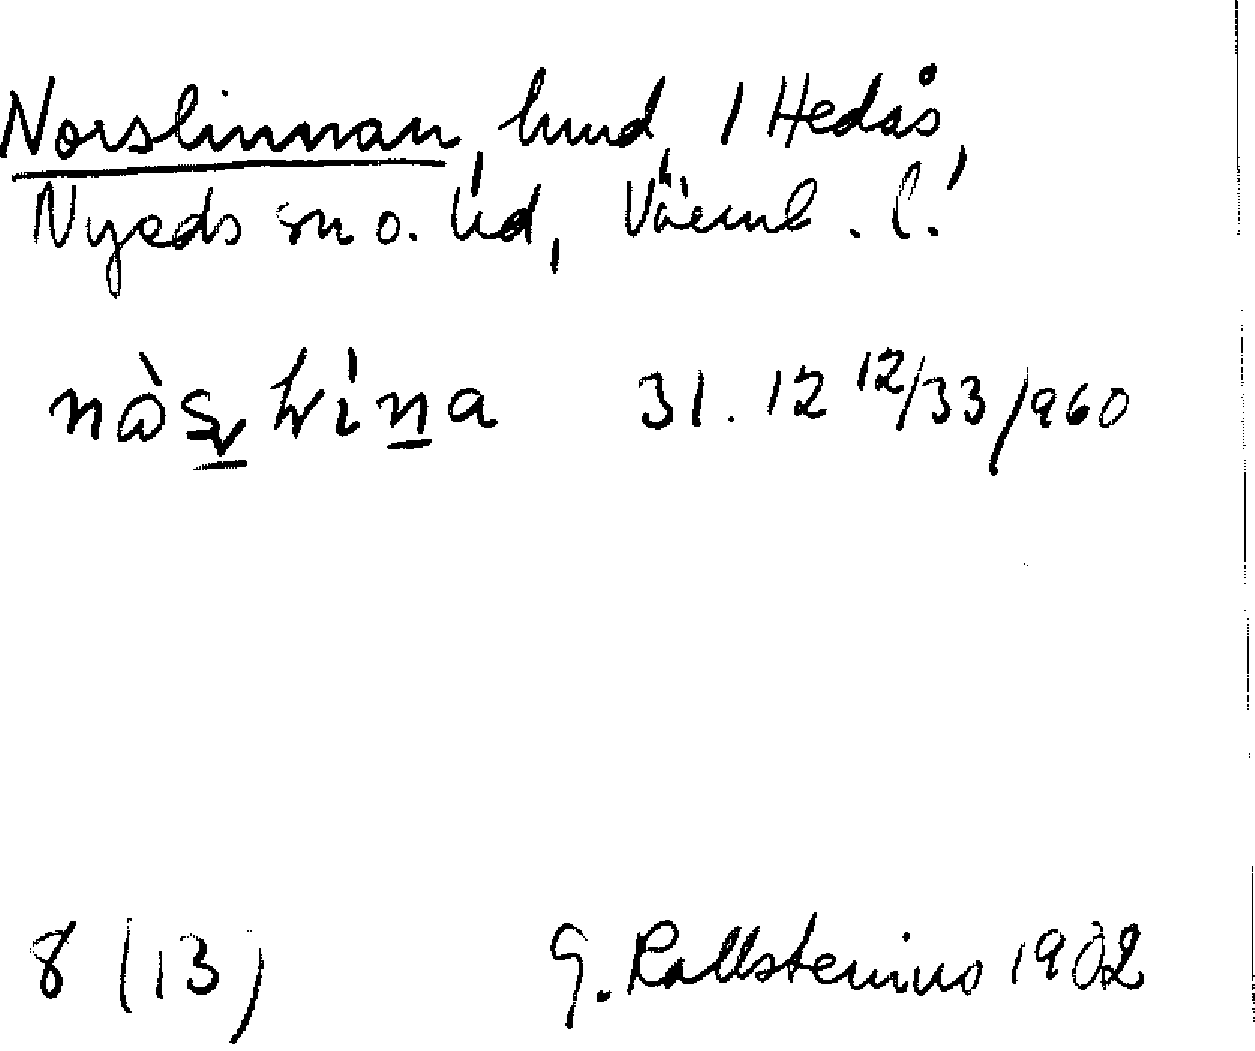 Norslinnan, lund, 1 Hedås,
Nyeds sn o. hd, Värml. l.
31. 12 12/33/960
8 (13) G. Kallstenius 1902